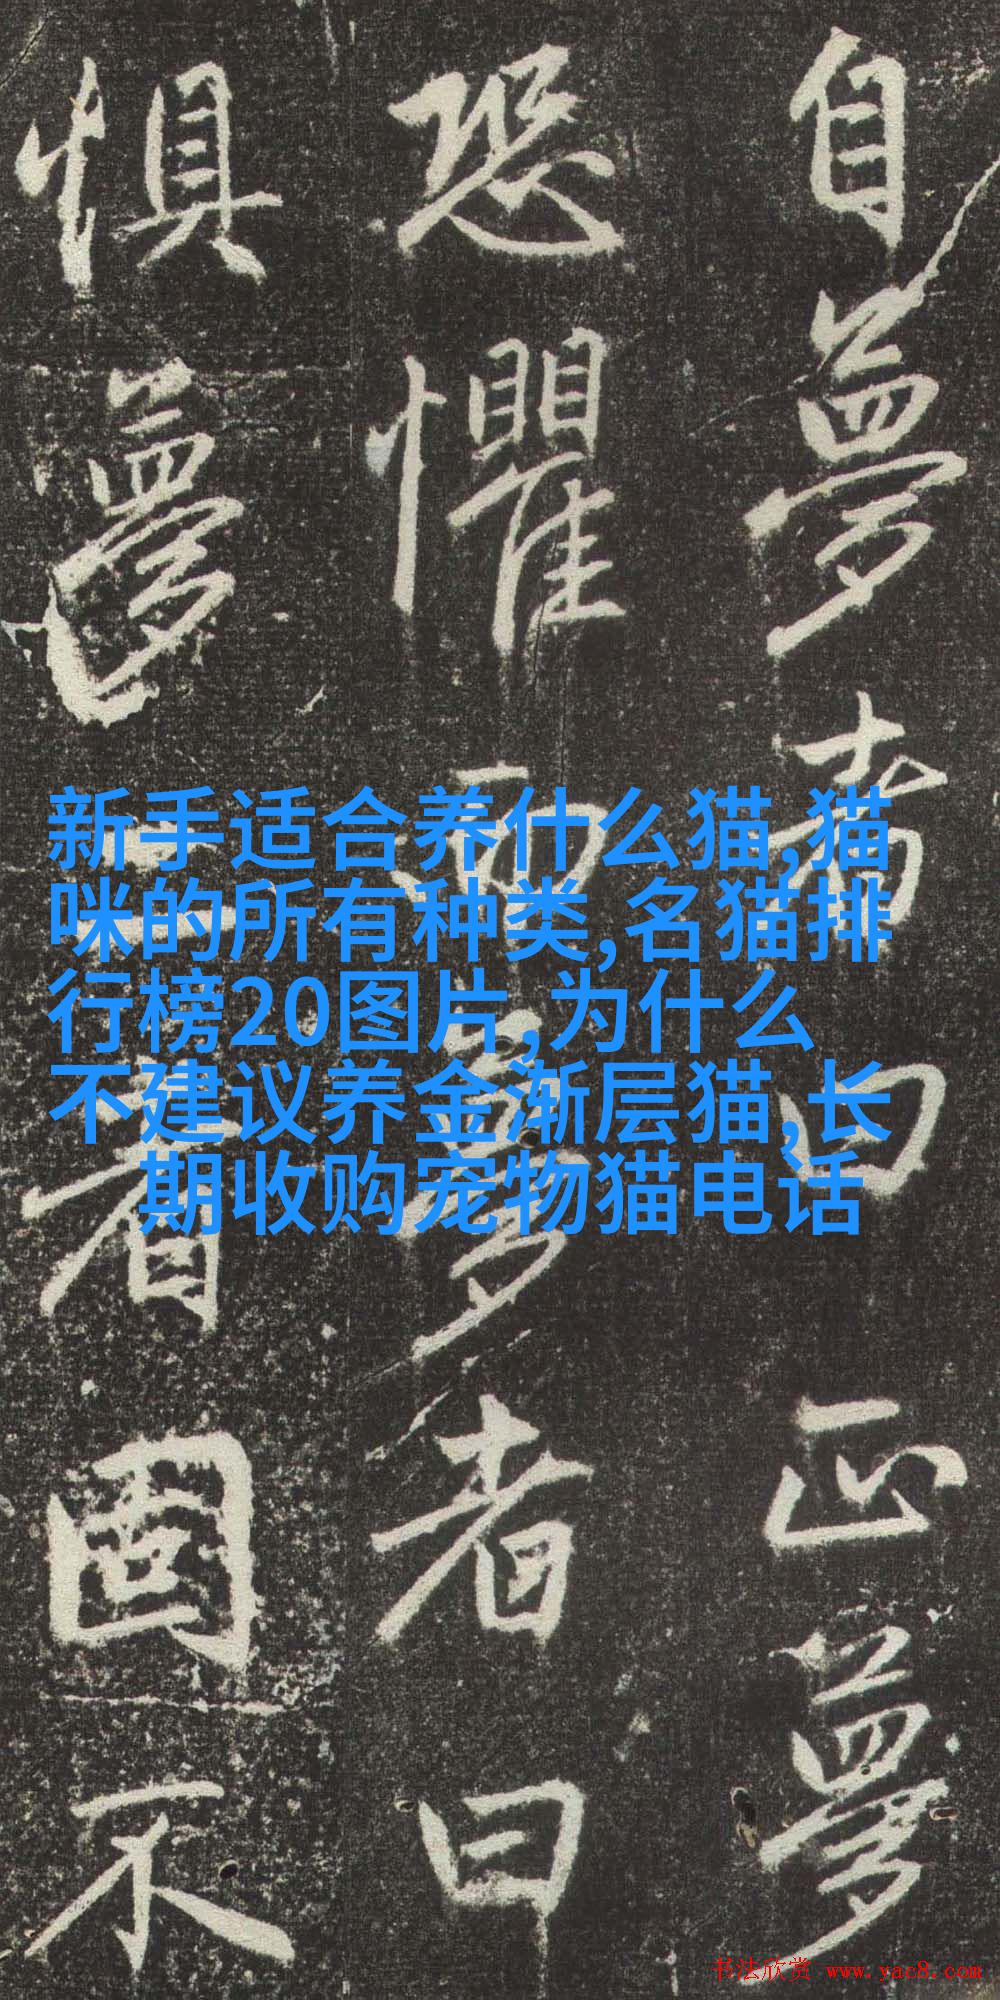 自夢者曰正夢
恐懼而夢者曰
惧夢二者固不
新手适合养什么猫,猫
咪的所有种类,名猫排
行榜20图片,为什么
不建议养金渐层猫,长
期收购宠物猫电话
书法欣赏 www.yac8.com